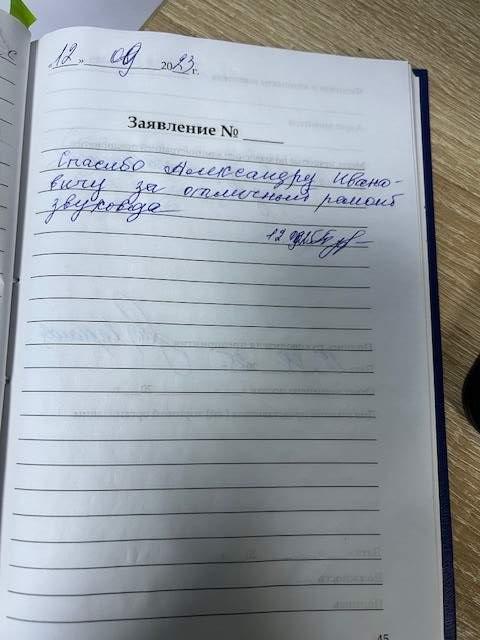 „12„ 09 2023 г.
Заявление № 
Спасибо Александру Ивано-
вичу за отличный ремонт
звуковода
12
45